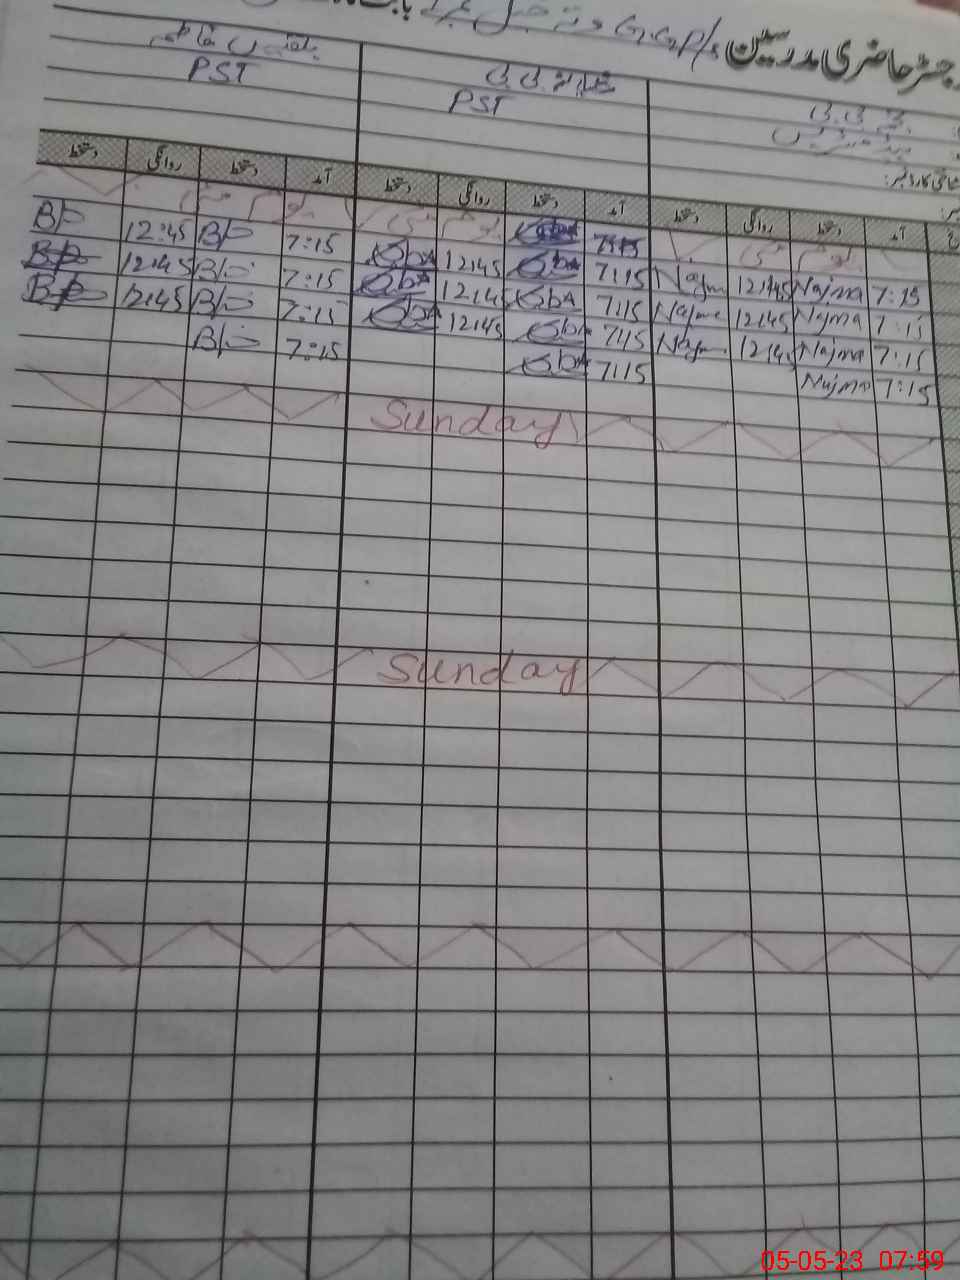 رجسٹر حاضری مدرسین G.G.P/S
بلقیس فاطمہ
PST
بی بی
PST
بی بی
ہیڈ مسٹریس
شناختی کارڈ نمبر:
آمد دستخط روانگی دستخط آمد دستخط روانگی دستخط آمد دستخط روانگی دستخط
یوم مئی یوم مئی یوم مئی
B/P 12:45 B/P 7:15 12:45 7:15 Najma 12:45 Najma 7:15
B/P 12:45 B/P 7:15 12:45 7:15 Najma 12:45 Najma 7:15
B/P 12:45 B/P 7:15 12:45 7:15 Najma 12:45 Najma 7:15
B/P 7:15 7:15 Najma 7:15
Sunday
Sunday
05-05-23 07:59